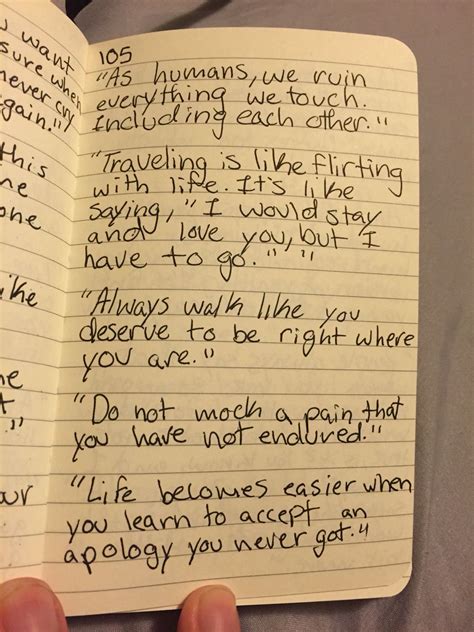 u want
sure when
never cry
gain."
this
ne
one
ike
he
t
."
our
105
"As humans, we ruin
everything we touch.
Including each other."
"Traveling is like flirting
with life. It's like
saying, "I would stay
and love you, but I
have to go." "
"Always walk like you
deserve to be right where
you are."
"Do not mock a pain that
you have not endured."
"Life becomes easier when
you learn to accept an
apology you never got."